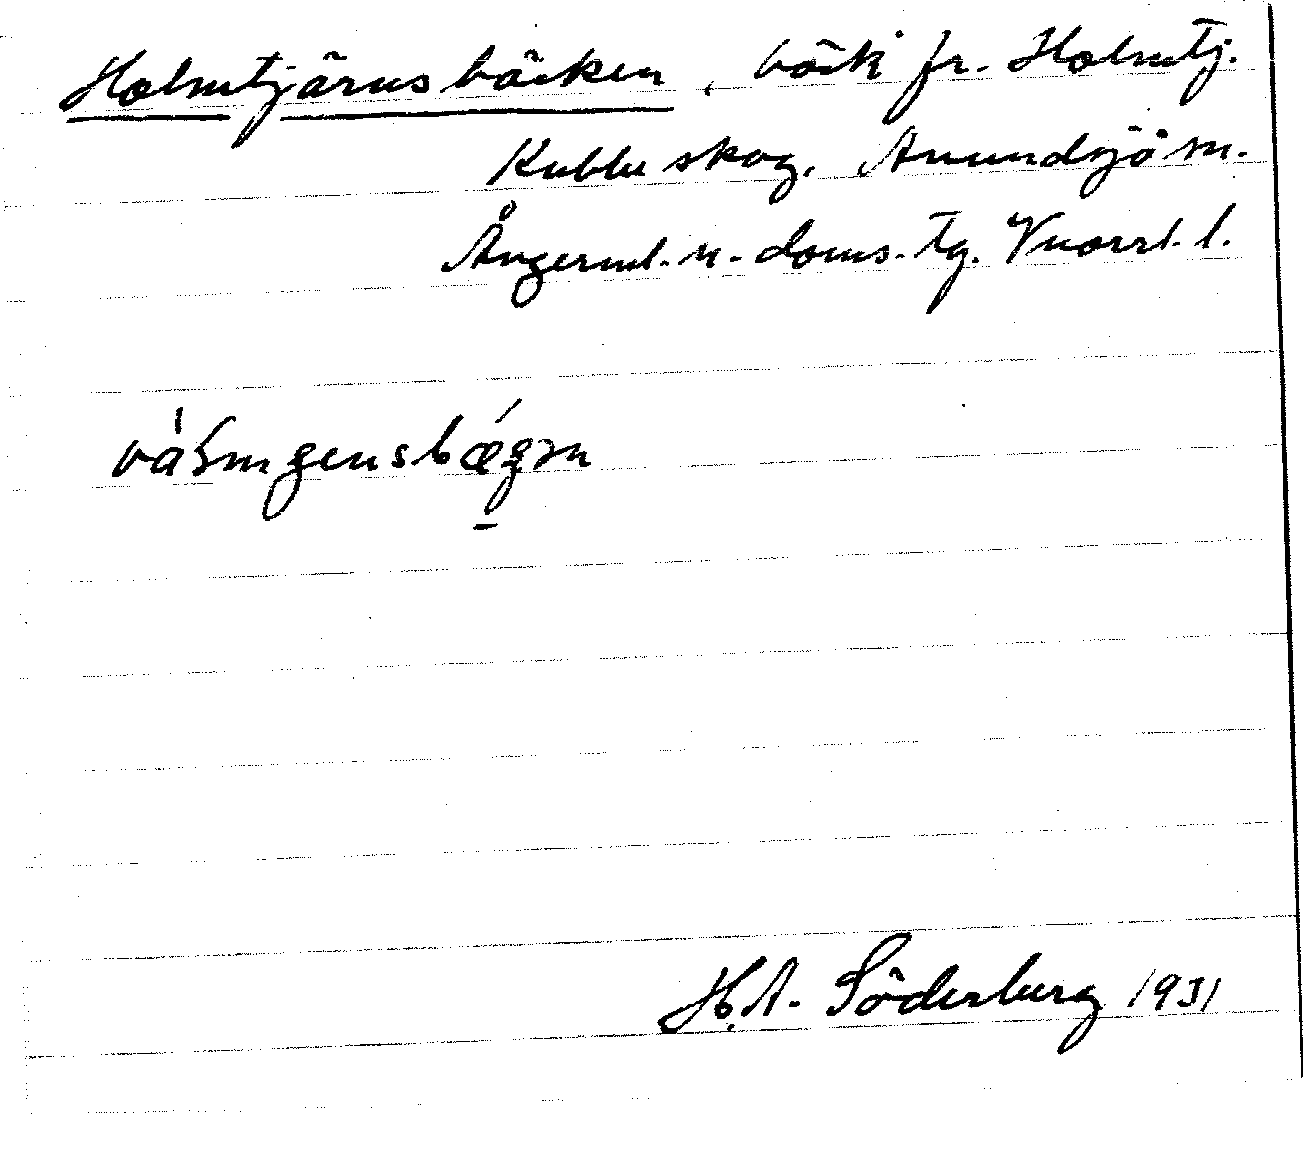 Holmtjärnsbäcken, bäck fr. Holmtj.
Kubbe skog, Anundsjö sn.
Ångerml. n. doms. tg. Vnorrl. l.
H. A. Söderberg 1931